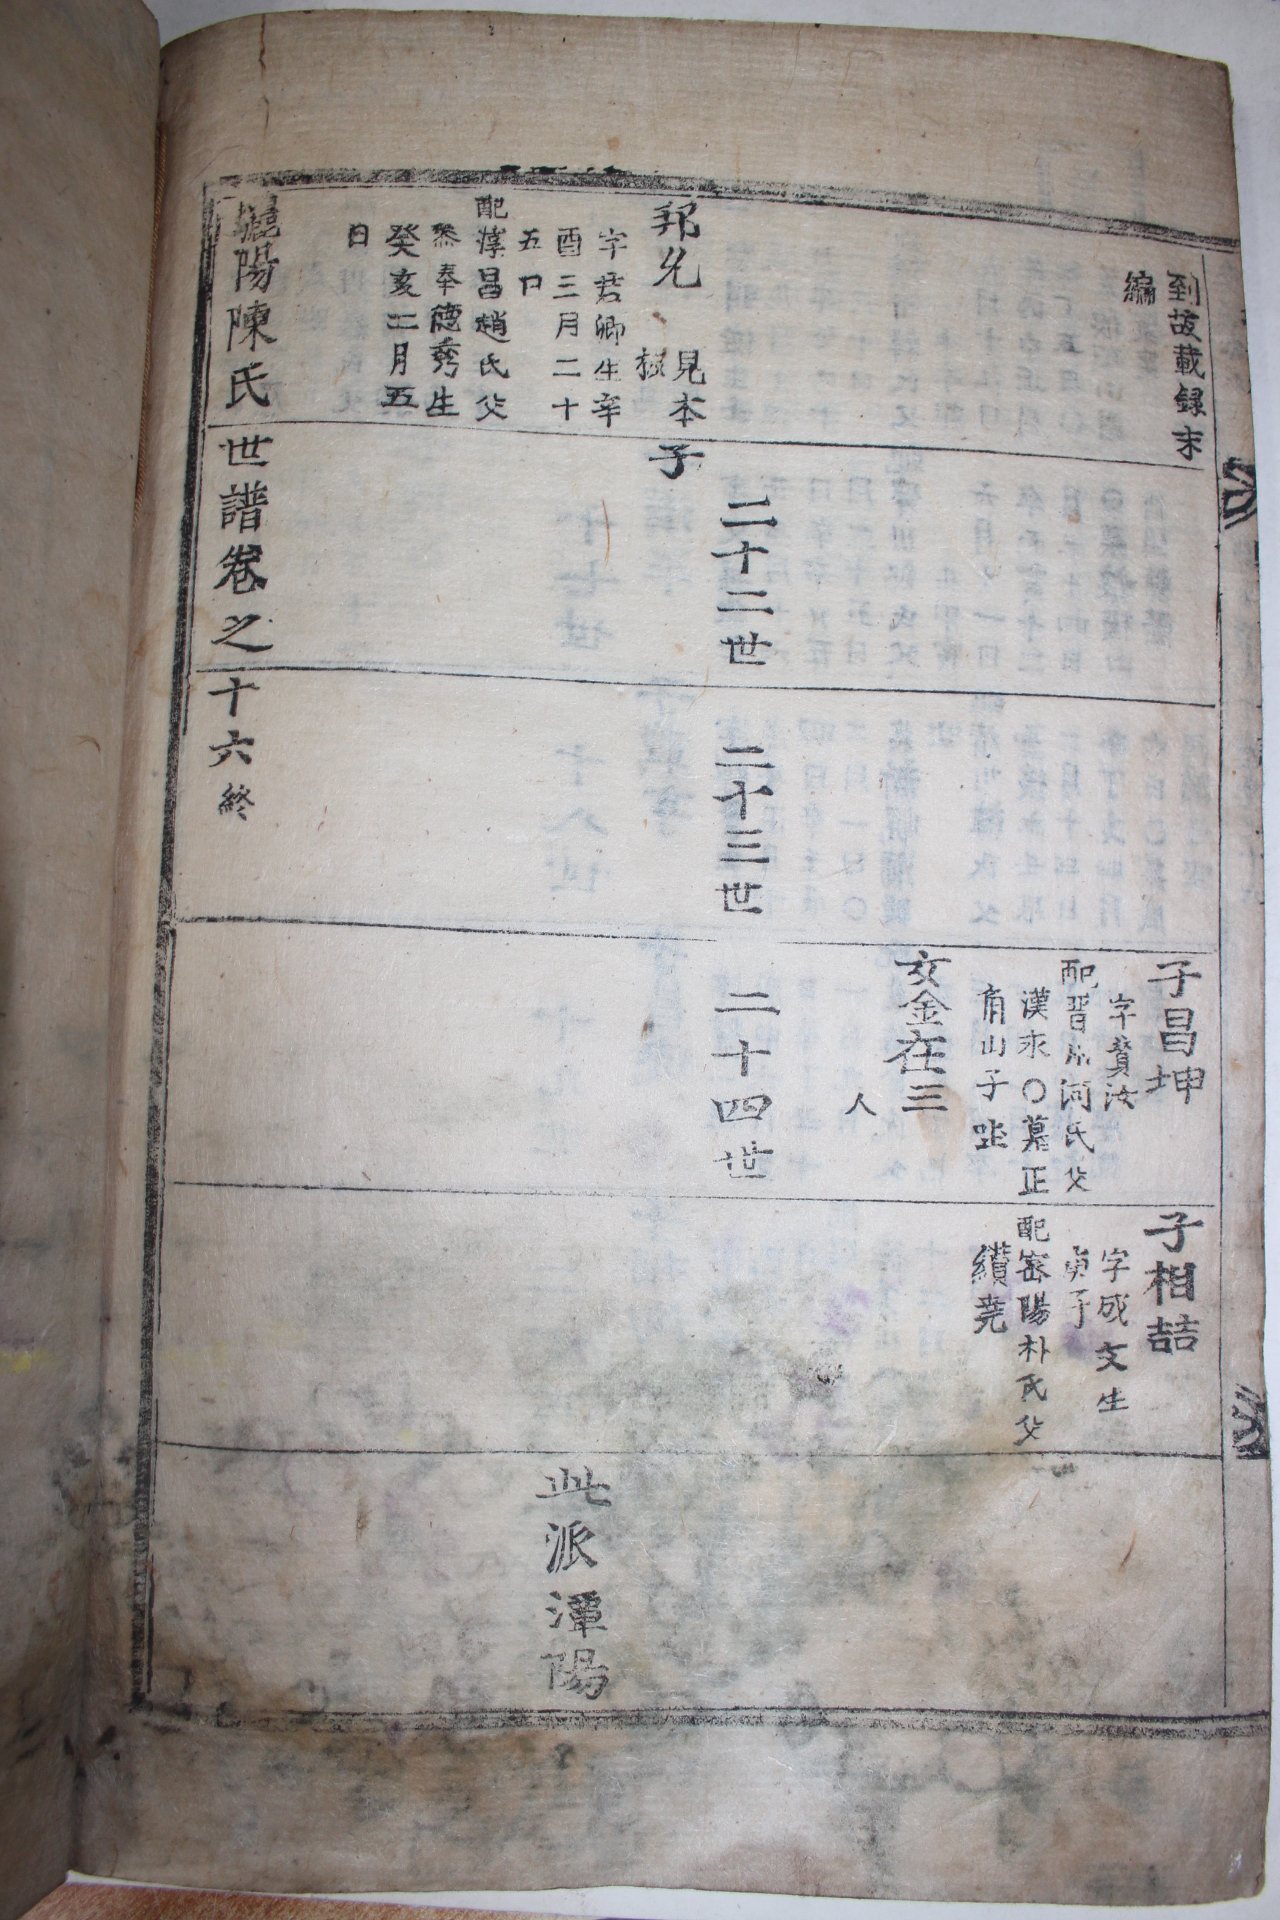 到故載録末
編
邦允
見本
字君卿生辛
酉三月二十
五日
配淳昌趙氏父
叅奉德秀生
癸亥二月五
日
子
二十二世
二十三世
子昌坤
字賛汝
配晋州河氏父
漢永〇墓正
角山子坐
女金在三
人
二十四世
子相喆
字成文生
庚子
配密陽朴氏父
纉堯
此派潭陽
陽陳氏世譜卷之十六終